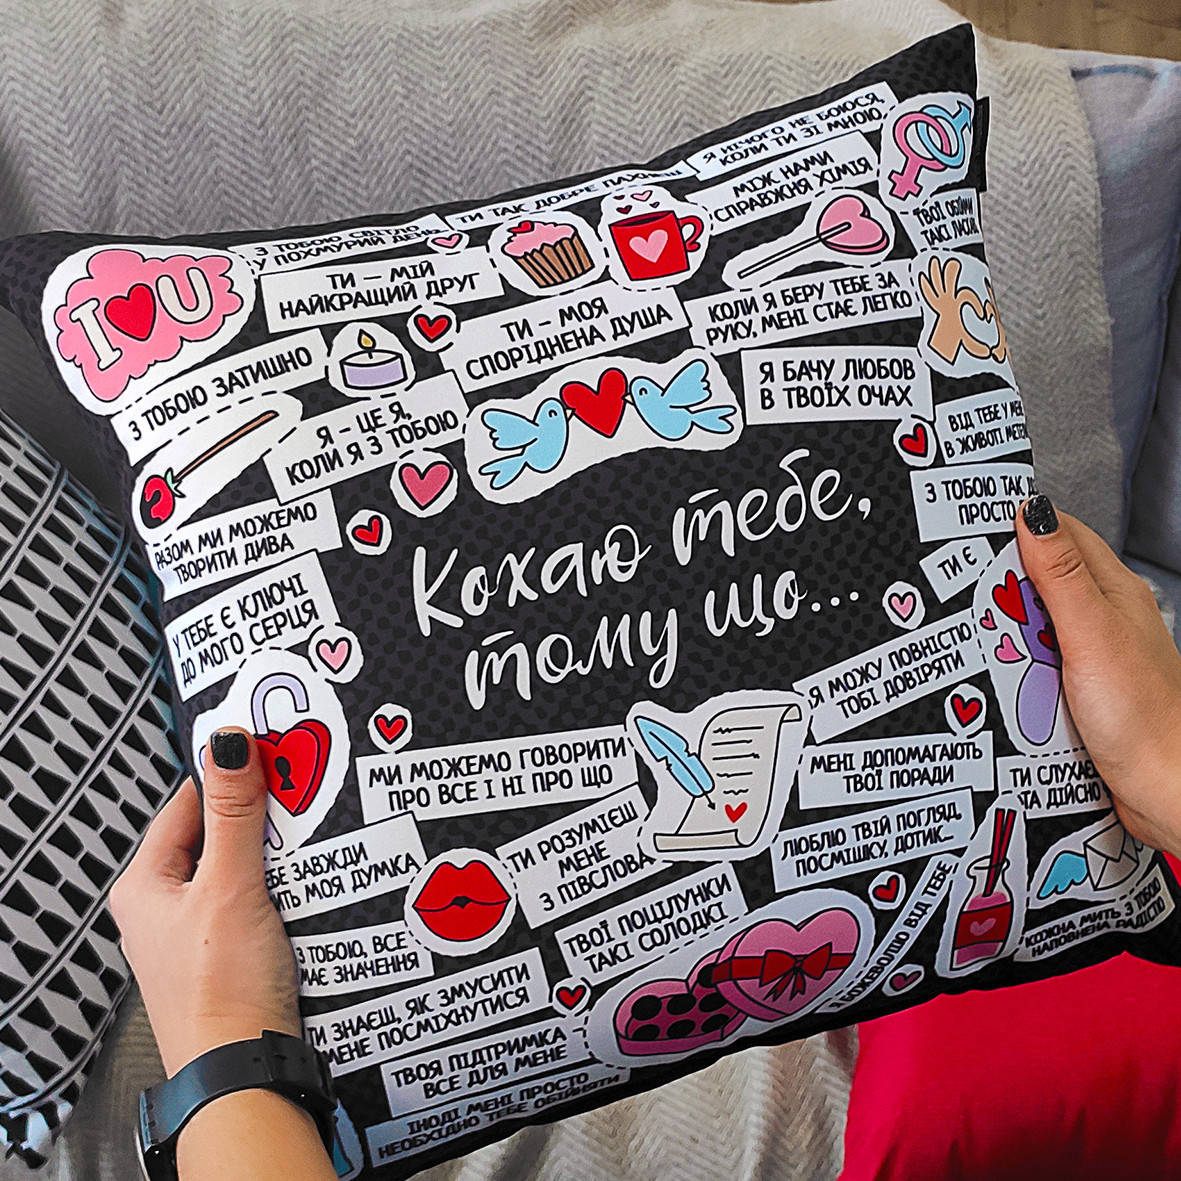 Я НІЧОГО НЕ БОЮСЯ,
КОЛИ ТИ ЗІ МНОЮ
ТИ ТАК ДОБРЕ ПАХНЕШ
МІЖ НАМИ
СПРАВЖНЯ ХІМІЯ
З ТОБОЮ СВІТЛО
У ПОХМУРИЙ ДЕНЬ
ТВОЇ ОБІЙМИ
ТАКІ
I U
ТИ – МІЙ
НАЙКРАЩИЙ ДРУГ
ТИ – МОЯ
СПОРІДНЕНА ДУША
КОЛИ Я БЕРУ ТЕБЕ ЗА
РУКУ, МЕНІ СТАЄ ЛЕГКО
З ТОБОЮ ЗАТИШНО
Я – ЦЕ Я,
КОЛИ Я З ТОБОЮ
Я БАЧУ ЛЮБОВ
В ТВОЇХ ОЧАХ
ВІД ТЕБЕ У МЕНЕ
В ЖИВОТІ
З ТОБОЮ ТАК
ПРОСТО
РАЗОМ МИ МОЖЕМО
ТВОРИТИ ДИВА
Кохаю тебе,
тому що...
У ТЕБЕ Є КЛЮЧІ
ДО МОГО СЕРЦЯ
ТИ Є
Я МОЖУ ПОВНІСТЮ
ТОБІ ДОВІРЯТИ
МИ МОЖЕМО ГОВОРИТИ
ПРО ВСЕ І НІ ПРО ЩО
МЕНІ ДОПОМАГАЮТЬ
ТВОЇ ПОРАДИ
ТИ СЛУХАЄШ
ТА ДІЙСНО
ЗАВЖДИ
МОЯ ДУМКА
ТИ РОЗУМІЄШ
МЕНЕ
З ПІВСЛОВА
ЛЮБЛЮ ТВІЙ ПОГЛЯД,
ПОСМІШКУ, ДОТИК...
З ТОБОЮ, ВСЕ
МАЄ ЗНАЧЕННЯ
ТВОЇ ПОЦІЛУНКИ
ТАКІ СОЛОДКІ
Я БОЖЕВОЛІЮ ВІД ТЕБЕ
КОЖНА МИТЬ З ТОБОЮ
НАПОВНЕНА РАДІСТЮ
ТИ ЗНАЄШ, ЯК ЗМУСИТИ
МЕНЕ ПОСМІХНУТИСЯ
ТВОЯ ПІДТРИМКА
ВСЕ ДЛЯ МЕНЕ
ІНОДІ МЕНІ ПРОСТО
НЕОБХІДНО ТЕБЕ ОБІЙНЯТИ